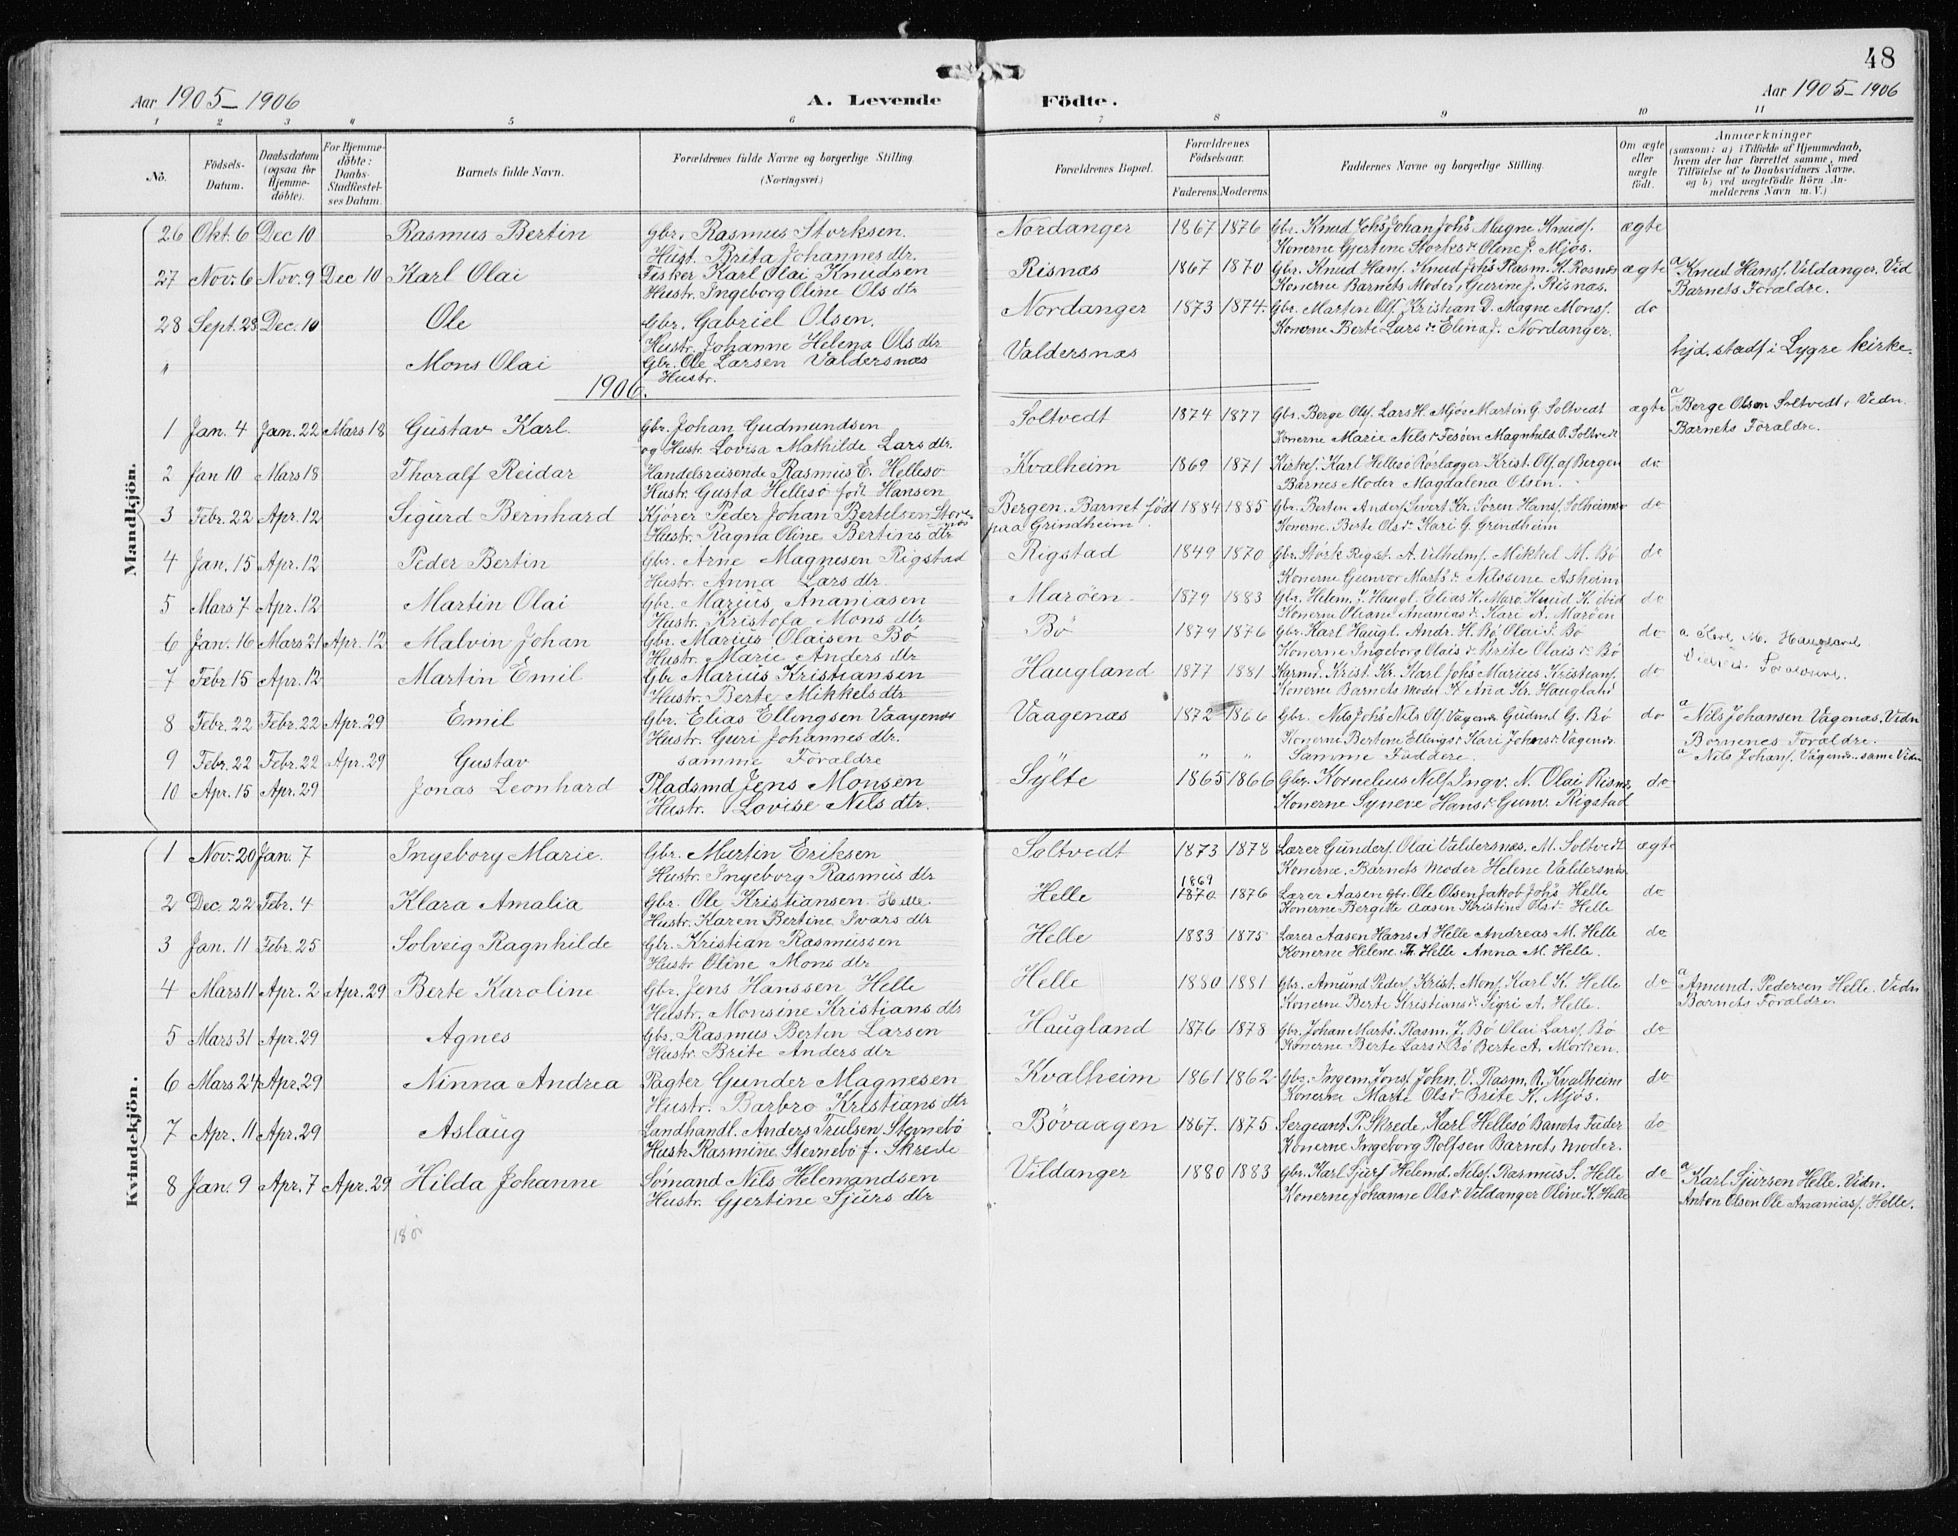 48
Aar 1905-1906 A. Levende Födte. Aar 1905-1906
1 2 3 4 5 6 7 8 9 10 11
No. Födsels-Datum. Daabsdatum (ogsaa for Hjemme-döbte). For Hjemme-döbte: Daabs-Stadfæstel-ses Datum. Barnets fulde Navn. Forældrenes fulde Navne og borgerlige Stilling (Næringsvei) Forældrenes Bopæl. Forældrenes Födselsaar. Faderens. Moderens. Faddernes Navne og borgerlige Stilling. Om ægte eller uægte födt. Anmærkninger (saasom: a) i Tilfælde af Hjemmedaab, hvem der har forrettet samme, med Tilföielse af to Daabsvidners Navne, og b) ved uægtefödte Börn An-melderens Navn m. V.)
Mandkjön.
26 Okt. 6 Dec 10 Rasmus Bertin Gbr. Rasmus Storksen Nordanger 1867 1876 Gbr. Knud Johs Johan Johs Mugne Knuds. ægte
Hust. Brita Johannes dtr. Konerne Gjertine Storks d. Oline J. Mjös.
27 Nov. 6 Nov. 9 Dec 10 Karl Olai Fisker Karl Olai Knudsen Risnæs 1867 1870 Gbr. Knud Hans. Knud Johs Rasm. K. Rosnæs ægte a Knud Hans. Vildanger. Vid
Hustr. Ingeborg Oline Ols dtr Konerne Barnets Moder, Gurine J. Risnæs. Barnets Forældre.
28 Sept. 23 Dec. 10 Ole Gbr. Gabriel Olsen. Nordanger 1873 1874. Gbr. Martin Ols. Kristian D. Magne Mons. do
Hustr. Johanne Helena Ols dtr Konerne Berte Lars d. Elina J. Nordanger.
" Mons Olai Gbr. Ole Larsen Valdersnæs Valdersnæs hjd. stadf i Lygre kirke.
Hustr.
1906.
1 Jan. 4 Jan. 22 Mars 18 Gustav Karl Gbr. Johan Gudmundsen Soltvedt 1874 1877 Gbr. Berge Ols. Lars H. Mjös Martin G. Soltvedt ægte a Berge Olsen Soltvedt, Vidn.
og Hustr. Lovisa Mathilde Lars dtr. Konerne Marie Nils d Fesöen Magnhild O. Soltvedt Barnets Forældre.
2 Jan 10 Mars 18 Thoralf Reidar Handelsreisende Rasmus E. Hellesö Kvalheim 1869 1871 Kirkes. Karl Hellesö Rörlægger Krist. Ols. af Bergen do
Hustr. Gusta Hellesö föd Hansen Barnes Moder Magdalena Olsen.
3 Febr. 22 Apr. 12 Sigurd Bernhard Kjörer Peder Johan Bertelsen Bergen. Barnet födt 1884 1885 Gbr. Berten Anders. Sivert Kr. Sören Hans. Solheim do
Hustr. Ragna Oline Bertins dtr paa Grindheim. Konerne. Berte Ols d. Kari G. Grindheim
4 Jan. 15 Apr. 12 Peder Bertin Gbr. Arne Magnesen Rigstad Rigstad 1849 1870 Gbr. Störk Rigst. A. Vilhelms. Mikkel M. Bö do
Hustr. Anna Lars dtr. Konerne Gunvor Marts d. Nilssine Asheim
5 Mars 7 Apr. 12 Martin Olai Gbr. Marius Ananiasen Maröen. 1879 1883 Gbr. Helem. J. Haugl. Elias K. Marö Knud K. ibid do
Hustr. Kristofa Mons dtr Konerne Oliane Ananias d. Kari A. Maröen
6 Jan. 16 Mars 21 Apr. 12 Malvin Johan Gbr. Marius Olaisen Bö Bö 1879 1876 Gbr. Karl Haugl. Andr. H. Bö Olai S. Bö do a M. Haugland
Hustr. Marie Anders dtr Konerne Ingeborg Olais d. Brite Olais d. Bö Forældre.
7 Febr 15 Apr. 12 Martin Emil Gbr Marius Kristiansen Haugland 1877 1881 Krist. Kr. Karl Johs Marius Kristians. do
Hustr. Berte Mikkels dtr Konerne Barnets Moder K. Ana Kr. Haugland
8 Febr. 22 Febr. 22 Apr. 29 Emil Gbr. Elias Ellingsen Vaagenæs Vaagenæs 1872 1866 Gbr. Nils Johs Nils Ols. Vagenæs Gudmd G. Bö do a Nils Johansen Vagenæs. Vidn
Hustr. Guri Johannes dtr. Konerne Bertene Ellings d Kari Johans d. Vagenæs. Börnenes Forældre.
9 Febr. 22 Febr. 22 Apr. 29 Gustav samme Forældre " " Samme Faddere. a Nils Johans. Vagenæs. same Vidn
10 Apr. 15 Apr. 29 Jonas Leonhard Pladsmd Jens Monsen Sylte 1865 1866 Gbr. Kornelius Nils. Ingv. N. Olai Risnæs, do
Hustr. Lovise Nils dtr. Konerne Syneve Hans d. Gunv. Rigstad
Kvindekjön.
1 Nov. 20 Jan. 7 Ingeborg Marie. Gbr. Martin Eriksen Soltvedt 1873 1878 Lærer Gunders. Olai Valdersnæs. M. Soltvedt ægte
Hustr. Ingeborg Rasmus dtr Konerne. Barnets Moder Helene Valdersnæs.
2 Dec. 22 Febr. 4 Klara Amalia Gbr. Ole Kristiansen Helle Helle 1869 1870 1876 Lærer Aasen Gbr. Ole Olsen Jakob Johs Helle do
Hustr. Karen Bertine Ivars dtr Konerne Bergitte Aasen Kristine Ols d. Helle
3 Jan. 11 Febr. 25 Solveig Ragnhilde Gbr. Kristian Rasmussen Helle 1883 1875 Lærer Aasen Hans A Helle Andreas M. Helle do
Hustr Oline Mons dtr Konerne Helene Th. Helle Anna M. Helle.
4 Mars 11 Apr. 2 Apr. 29 Berte Karoline Gbr. Jens Hanssen Helle Helle 1880 1881 Gbr. Amund Peders. Krist. Mons. Karl K. Helle do a Amund Pedersen Helle. Vidn
Hustr. Monsine Kristians dtr Konerne Berte Kristians d. Sigri A. Helle. Barnets Forældre
5 Mars 31 Apr. 29 Agnes Gbr. Rasmus Berten Larsen Haugland 1876 1878 Gbr. Johan Marts. Rasm. J. Bö Olai Lars. Bö do
Hustr. Brite Anders dtr Konerne Berte Lars d. Bö Berte A. Morken.
6 Mars 24 Apr. 29 Ninna Andrea Pagter Gunder Magnesen Kvalheim 1861 1862 Gbr. Ingem. Jons. John. V. Rasm. R. Kvalheim do
Hustr. Barbro Kristians dtr Konerne Marte Ols d. Brite K. Mjös.
7 Apr. 11 Apr. 29 Aslaug Landhandl. Anders Trulsen Sternebö Bövaagen 1867. 1875 Sergeant P. Skrede. Karl Hellesö Banets Fader do
Hustr. Rasmine Sternebö f. Skrede Konerne Ingeborg Rolfsen Barnets Moder.
8 Jan. 9 Apr. 7 Apr. 29 Hilda Johanne Sömand Nils Helemandsen Vildanger 1880 1883 Gbr. Karl Sjurs. Helemd. Nils. Rasmus S. Helle do a Karl Sjursen Helle. Vidn.
Hustr. Gjertine Sjurs dtr Konerne Johanne Ols d. Vildanger Oline K. Helle Anton Olsen Ole Ananias. Helle.